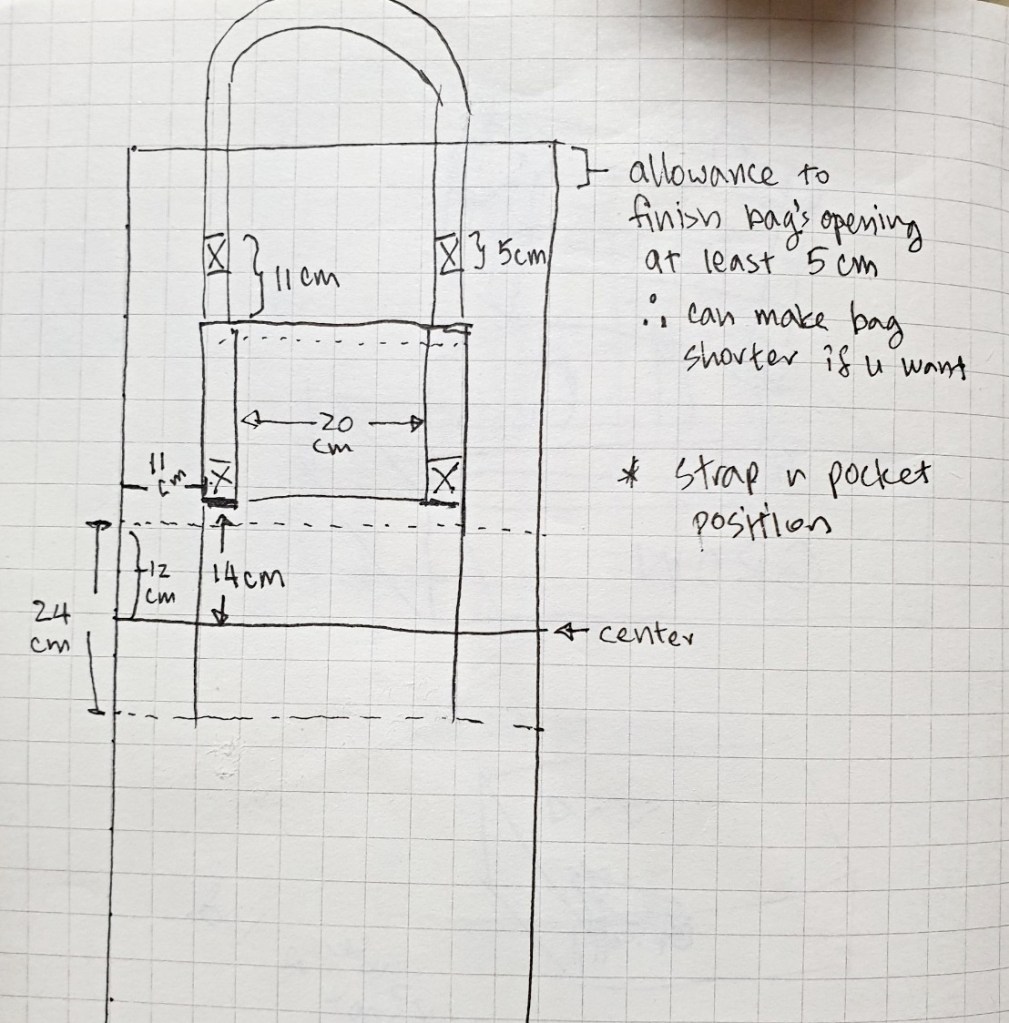 allowance to
finish bag's opening
at least 5cm
∴ can make bag
shorter if u want
5cm
11cm
20
cm
11
cm
* strap n pocket
position
12
cm
14cm
24
cm
← center